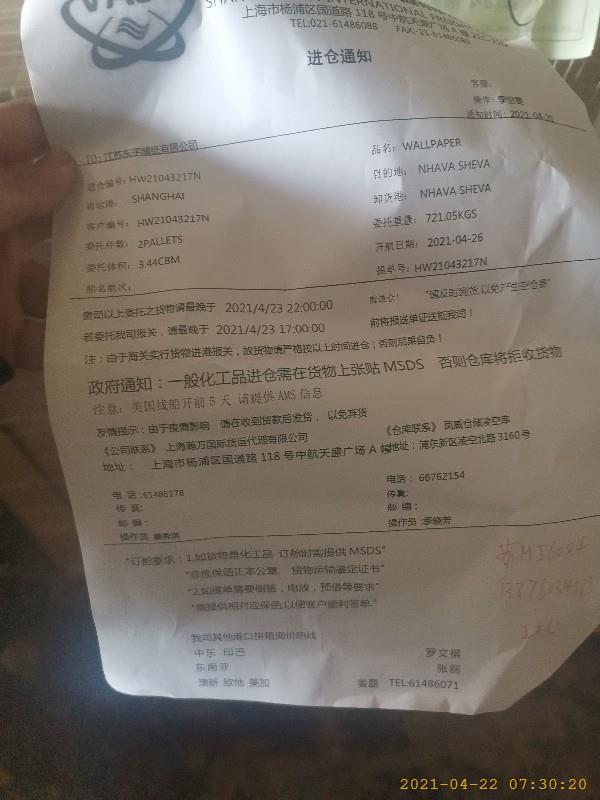 INTERNATIONAL
上海市杨浦区国道路 118 号中航天盛广场 A 幢
TEL:021-61486088 FAX:-21-61486089
进仓通知
客服:
操作: 李
通知时间: 2021-04-20
TO: 江苏 有限公司
进仓编号: HW21043217N
SHANGHAI
客户编号: HW21043217N
委托件数: 2PALLETS
委托体积: 3.44CBM
船名航次:
品名: WALLPAPER
目的地: NHAVA SHEVA
卸货港: NHAVA SHEVA
委托重量: 721.05KGS
开航日期: 2021-04-26
提单号: HW21043217N
贵司以上委托之货物请最晚于 2021/4/23 22:00:00 前进仓! "请及时到货,以免产生 仓费"
若委托我司报关，请最晚于 2021/4/23 17:00:00 前将报送单证送抵我司!
注：由于海关实行货物进港报关，故货物请严格按以上时间进仓；否则后果自负!
政府通知：一般化工品进仓需在货物上张贴 MSDS 否则仓库将拒收货物
注意：美国线船开前 5 天 请提供 AMS 信息
友情提示：由于疫情影响 请在收到货款后发货，以免弃货
《公司联系》 上海瀚万国际货运代理有限公司
地址： 上海市杨浦区国道路 118 号中航天盛广场 A 幢
《仓库联系》 凤威仓储凌空库
地址：浦东新区凌空北路 3160 号
电 话 :61486178
传 真:
邮 编:
操作员
电话： 66762154
传真:
邮 编:
操作员 :李晓芳
"订舱要求：1.如货物是化工品 订舱时需提供 MSDS"
"非危保函正本公章. 货物运输鉴定证书"
"2.如提单需要倒签，电放，预借等要求"
"请提供相对应保函,以便客户顺利签单."
苏MJ6084
我司其他港口拼箱询价热线：
中东 印巴 罗文祺
东南亚 张
澳新 欧地 美加 姜磊 TEL:61486071
2021-04-22 07:30:20